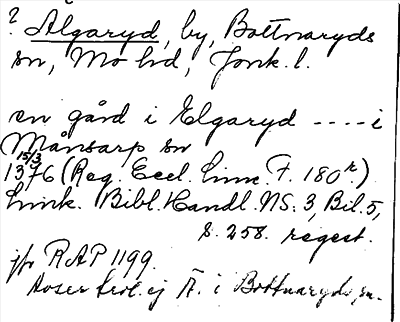 ? Älgaryd, by, Bottnaryds
sn, Mo hd, Jönk. l.
en gård i Elgaryd ---- i
Månsarp sn
15/3 1376 (Reg. Eccl. Linc. F. 180r)
Link. Bibl. Handl. NS. 3, Bil. 5,
s. 258. regest.
jfr RAP 1199.
avser trol. ej Ä. i Bottnaryds sn.